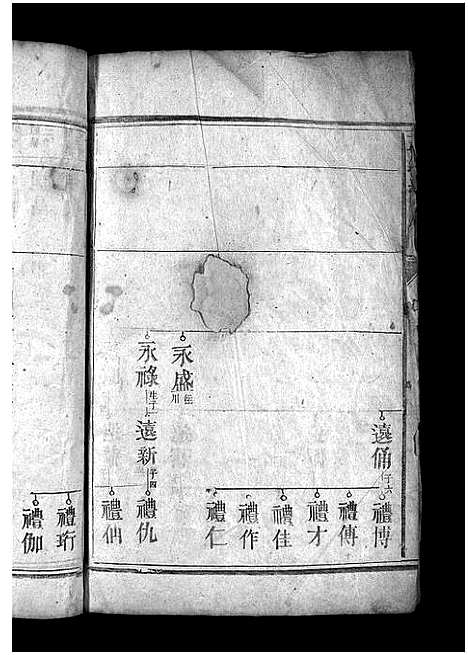 遠俑子六
禮博
禮傳
禮才
禮佳
禮作
禮仁
永盛往川
永祿生子
遠新子四
禮仇
禮仙
禮珩
禮伽